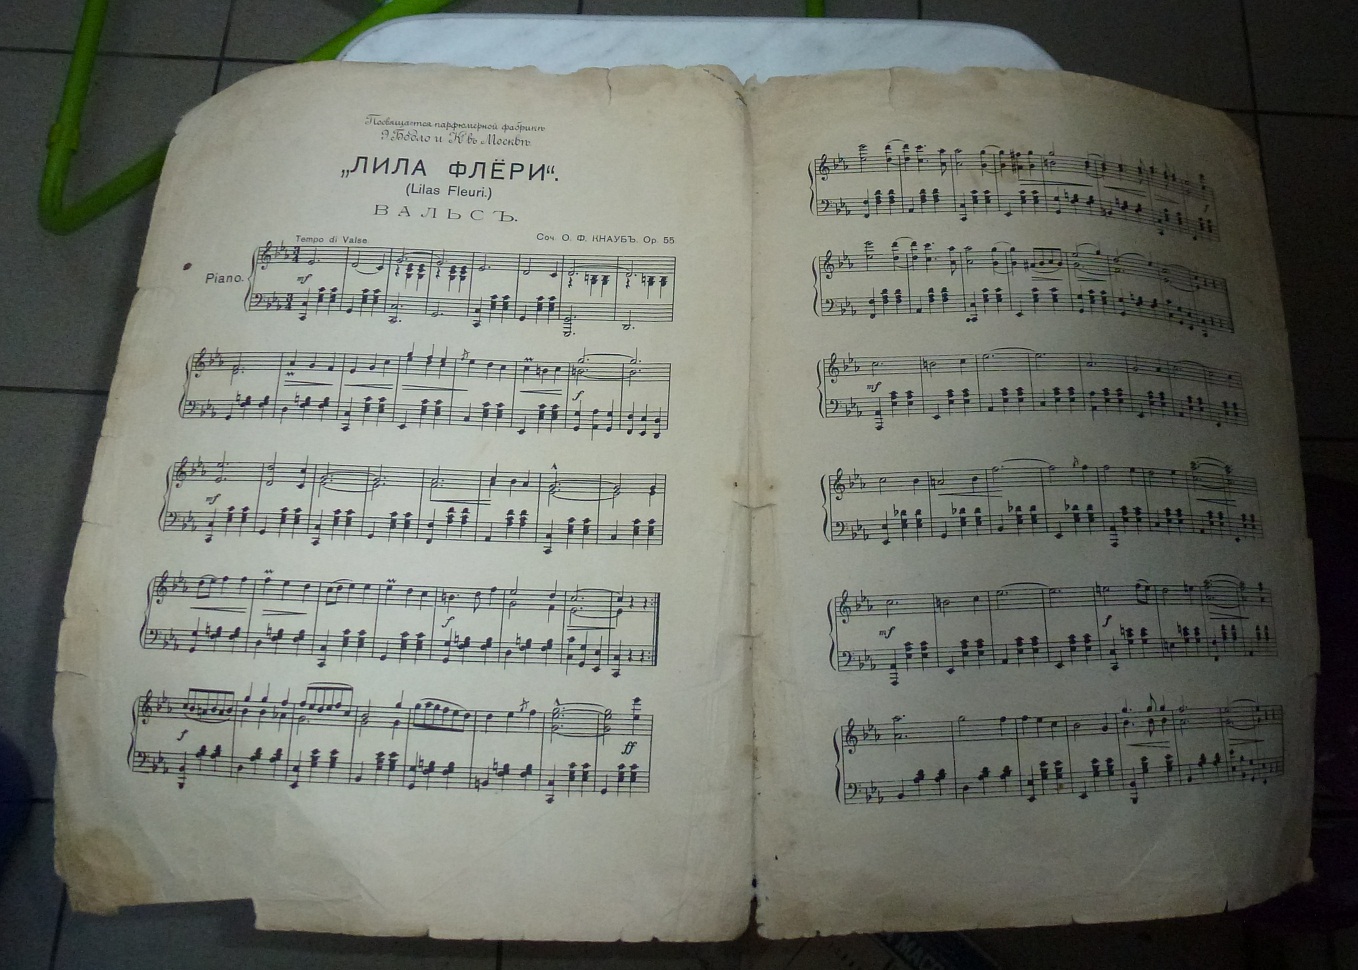 Посвящается парфюмерной фабрикѣ
Э Бодло и Кº въ Москвѣ
„ЛИЛА ФЛЁРИ“.
(Lilas Fleuri.)
ВАЛЬСЪ.
Tempo di Valse
Соч. О. Ф. КНАУБЪ. Op. 55
Piano.
mf
f
mf
f
f
ff
f
mf
mf
f